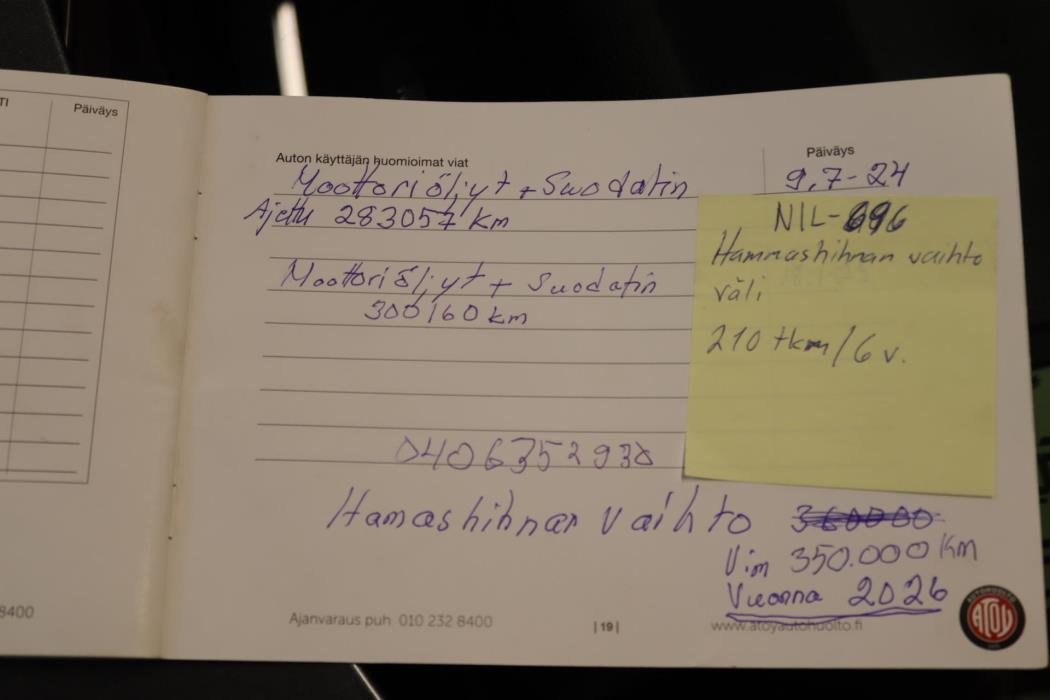 TI
Päiväys
8400
Auton käyttäjän huomioimat viat
Päiväys
Moottoriöljyt + Suodatin
9.7-24
Ajettu 283057 km
Moottoriöljyt + Suodatin
300160 km
NIL-696
Hammashihnan vaihto
väli
210 tkm/6 v.
0406352930
Hamashihnan vaihto 360000
Vim 350.000 KM
Vuonna 2026
Ajanvaraus puh. 010 232 8400
|19|
www.atoyautohuolto.fi
AUTOHUOLTO
ATOY